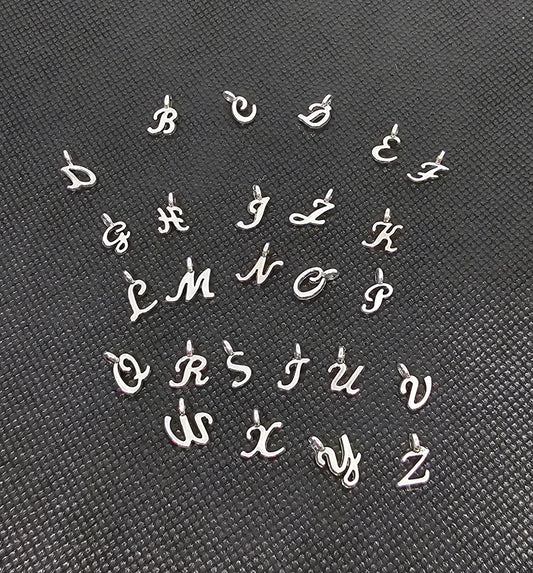 D B C D E F
G H I J K
L M N O P
Q R S T U V
W X Y Z